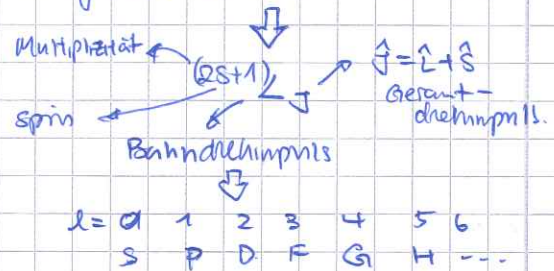 Multiplizität (2S+1) L J Ĵ = L̂ + Ŝ
Spin Gesamt-
drehimpuls.
Bahndrehimpuls
l = 0 1 2 3 4 5 6
S P D F G H ---